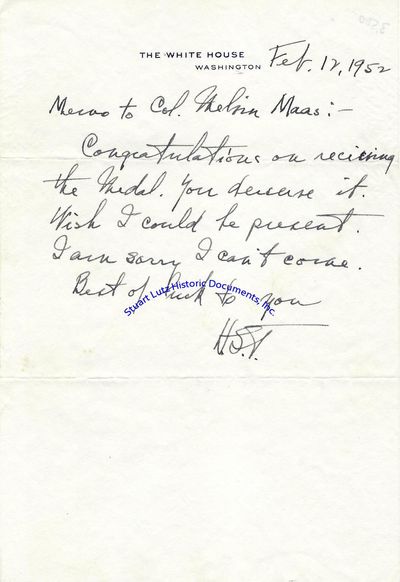 THE WHITE HOUSE
WASHINGTON
Feb. 12, 1952
Memo to Col. Melvin Maas:—
Congratulations on recieving
the Medal. You deserve it.
Wish I could be present.
I am sorry I can't come.
Best of luck to you
H.S.T.
Stuart Lutz Historic Documents, Inc.